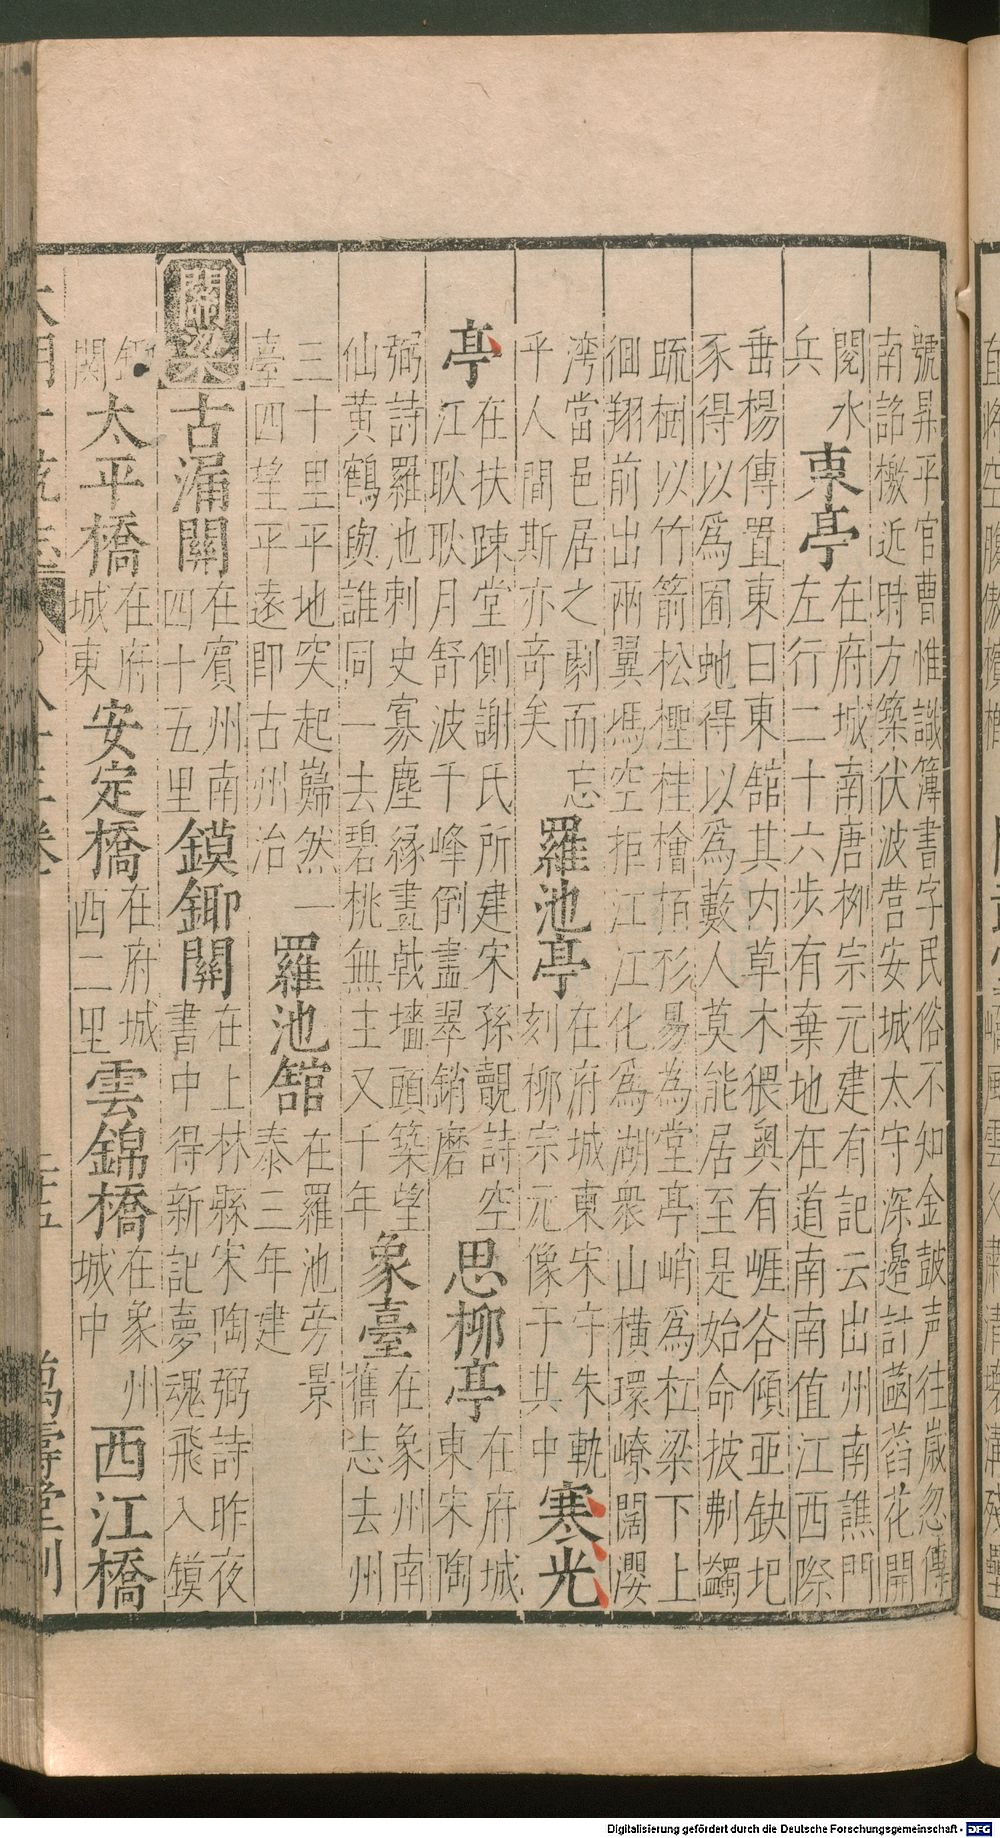 號昇平官曹惟識簿書字民俗不知金鼓声往歲忽傳
南詔檄近時方築伏波营安城太守深邉計菡萏花開
閱水
兵
東亭
在府城南唐柳宗元建有記云出州南譙門
左行二十六步有棄地在道南南值江西際
垂楊傳置東曰東舘其内草木猥奥有崕谷傾亜缺圯
豕得以爲囿虵得以爲藪人莫能居至是始命披刜蠲
䟽樹以竹箭松檉桂檜栢杉易為堂亭峭爲杠梁下上
徊翔前出兩翼馮空拒江江化爲湖衆山横環嶛闊瀴
湾當邑居之劇而忘
乎人間斯亦竒矣
羅池亭
在府城東宋守朱軌
刻柳宗元像于其中
寒光
亭
在扶踈堂側謝氏所建宋孫覿詩空
江耿耿月舒波千峰倒盡翠銷磨
思柳亭
在府城
東宋陶
弼詩羅池刺史寡塵緣畫戟墻頭築望
仙黄鶴與誰同一去碧桃無主又千年
象臺
在象州南
舊志去州
三十里平地突起巋然一
臺四望平遠即古州治
羅池舘
在羅池旁景
泰三年建
關梁
古漏關
在賓州南
四十五里
鏌鎁關
在上林縣宋陶弼詩昨夜
書中得新記夢魂飛入鏌
鎁
關
太平橋
在府
城東
安定橋
在府城
西二里
雲錦橋
在象州
城中
西江橋
萬壽堂刊
Digitalisierung gefördert durch die Deutsche Forschungsgemeinschaft - DFG